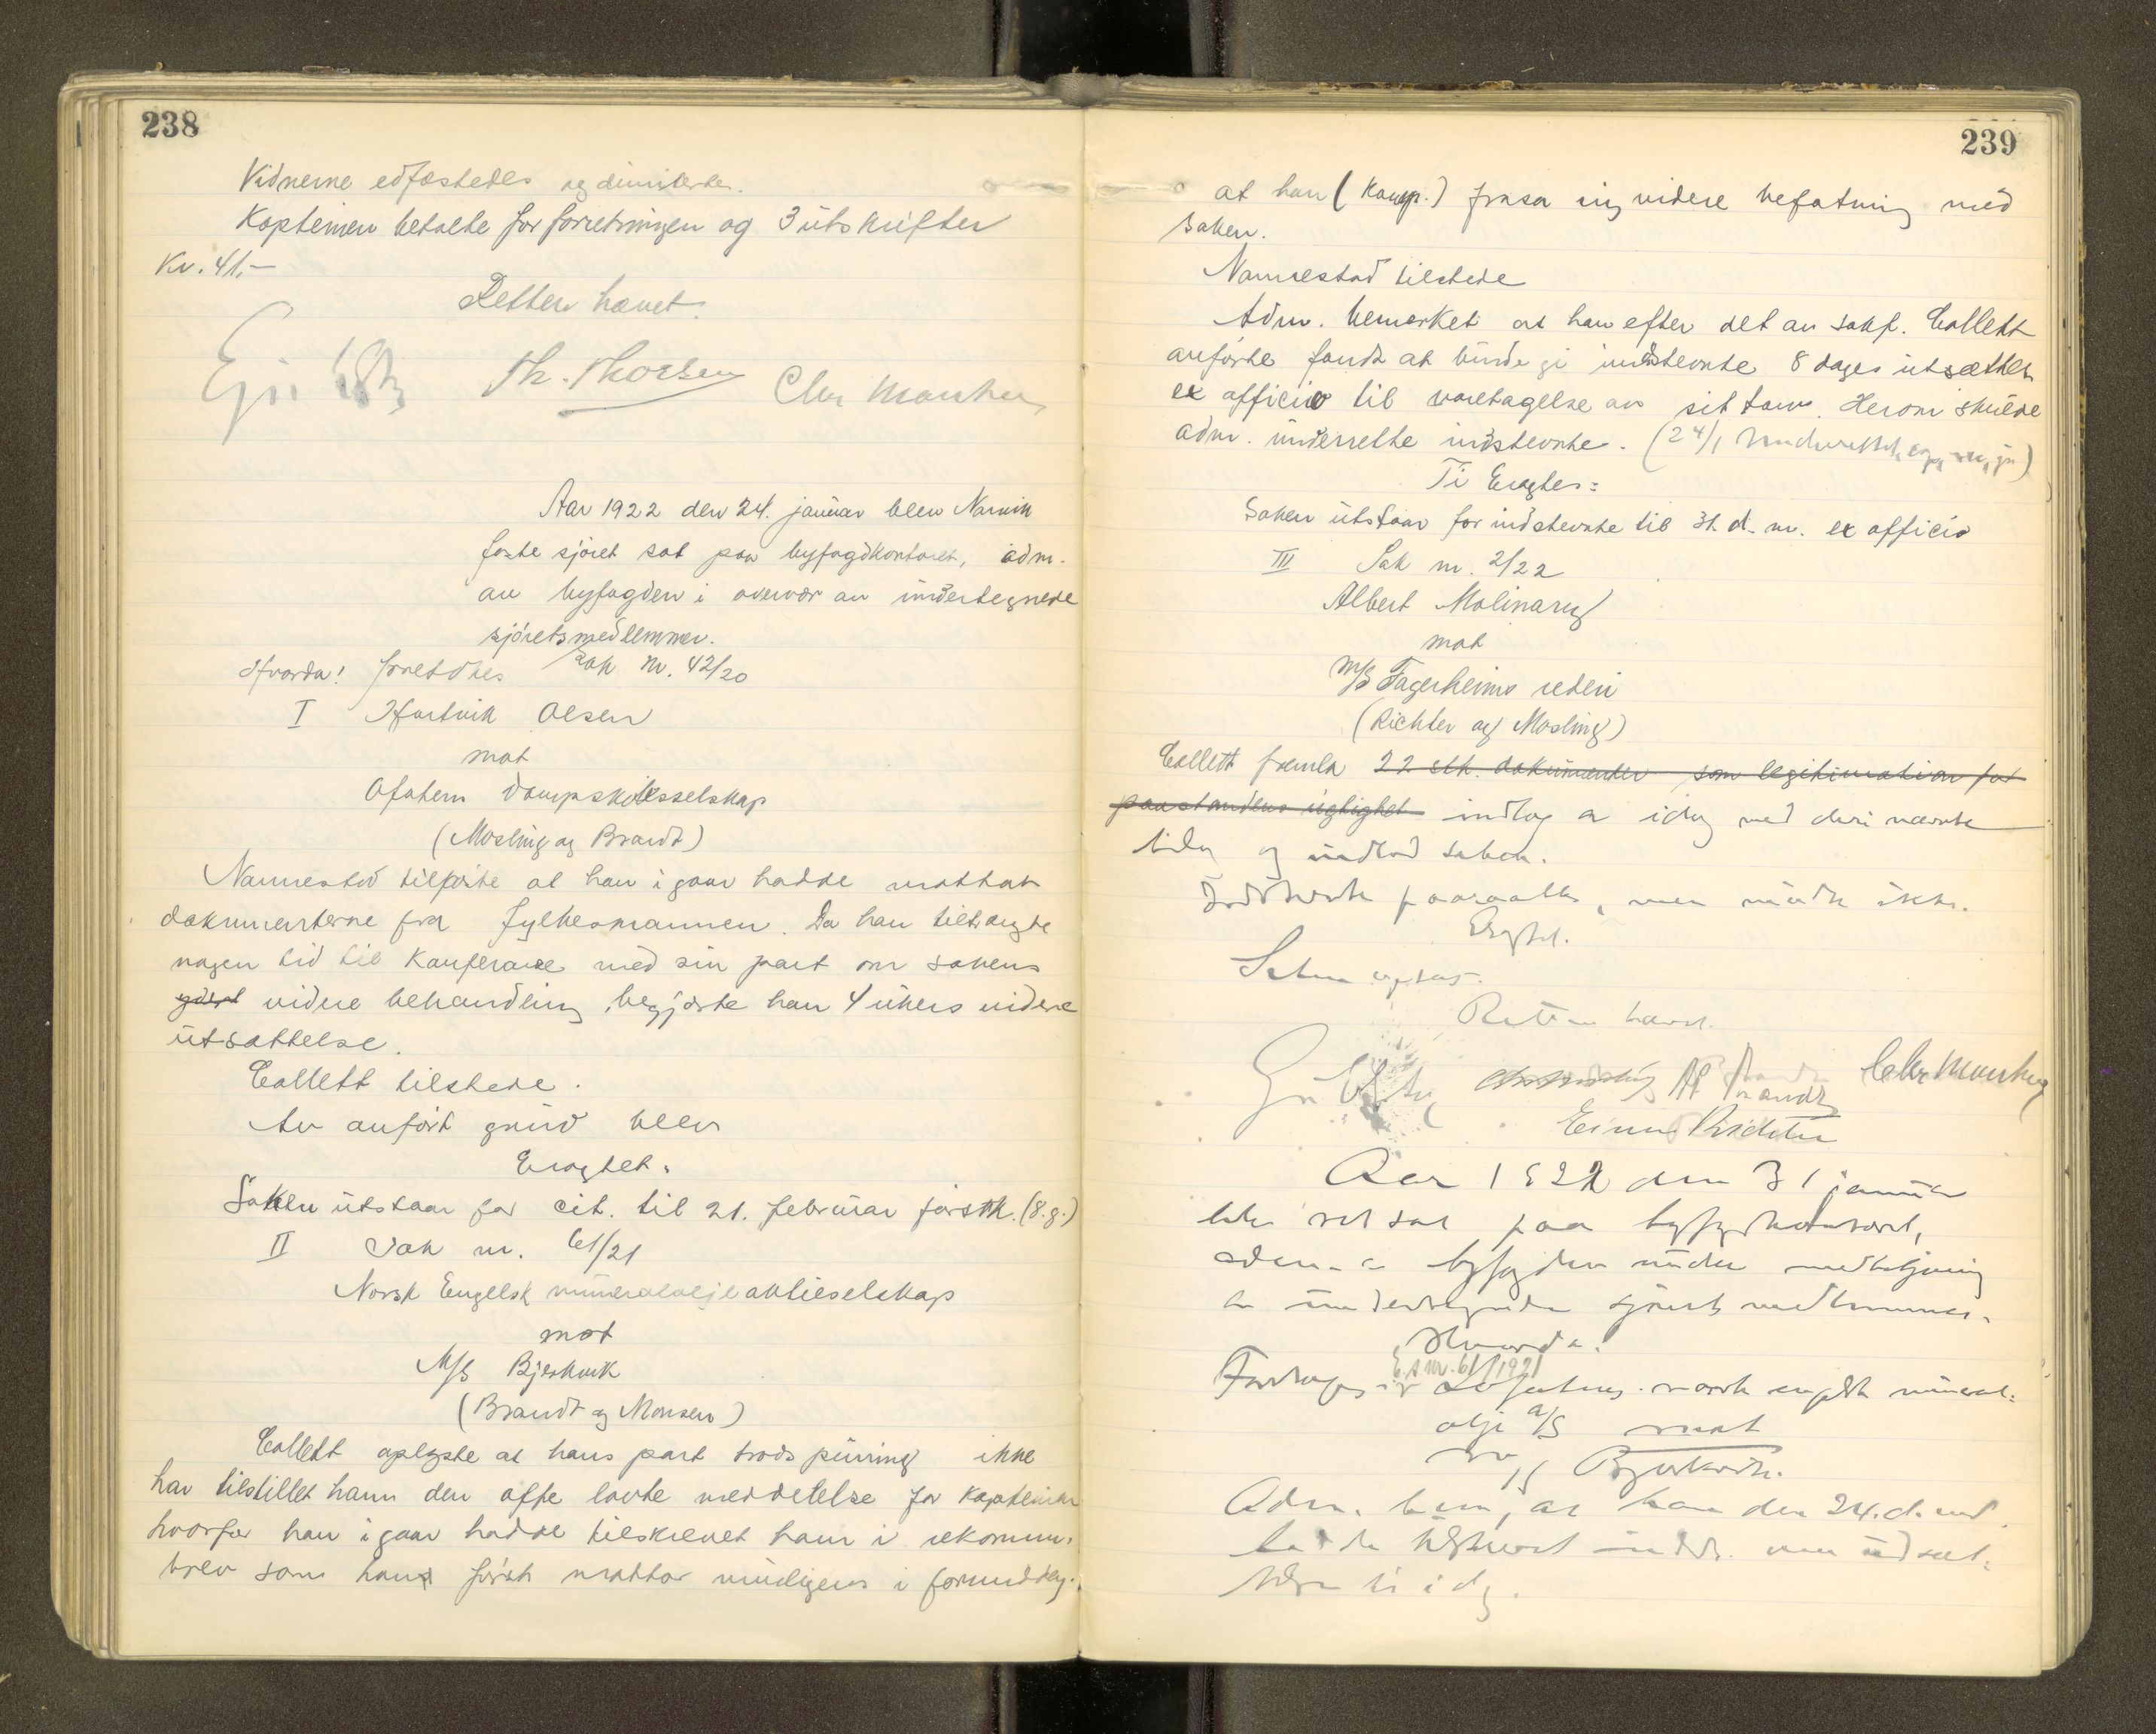 238
Vidnerne edfæstedes og dimitertes.
Kapteinen betalte for forretningen og 3 utskrifter
Kr. 41.-
Retten hævet.
Th. Thorsen Chr Monsen
Aar 1922 den 24. januar blev Narvik
faste sjöret sat paa byfogdkontoret, adm.
av byfogden i overvær av undertegnede
sjöretsmedlemmer.
Hvorda! foretokes Sak nr. 42/20
I Hartvik Olsen
mot
Ofotens Dampskibsselskap
(Mosling og Brandt)
Nannestad tilförte at han igaar hadde mottat
dokumenterne fra fylkesmannen. Da han tiltrængte
nogen tid til konferanse med sin part om sakens
videre behandling, begjærte han 4 ukers videre
utsættelse.
Collett tilstede.
Av anfört grund blev
Eragtet:
Saken utstaar for cit. til 21. februar förstk. (8.g.)
II Sak nr. 61/21
Norsk Engelsk mineralolje aktieselskap
mot
M/S Bjerkvik
(Brandt og Monsen)
Collett oplyste at hans part trods purring ikke
har tilstillet ham den ofte lovte meddelelse for kapteinen
hvorfor han igaar hadde tilskrevet ham i rekomm.
brev som han först mottar muligens i formiddag.
239
at han (Komp.) frasa sig videre befatning med
saken.
Nannestad tilstede
Adm. bemerket at han efter det av sakf. Collett
anförte fandt at burde gi indstevnte 8 dages utsættelse
ex officio til varetagelse av sit tarv. Herom skulde
adm. underrette indstevnte. (24/1
Ti Eragtes:
Saken utstaar for indstevnte til 31. d. m. ex officio
III Sak nr. 2/22
Albert Molinary
mot
M/S Fagerheims rederi
(Richter og Mosling)
Collett fremla 22 stk. dokumenter som legitimation for
paastandens rigtighet indlæg av idag med deri nævnte
bilag og indlod saken.
Indstevnte paaraabt, men mödte ikke.
Eragtet.
Saken optas.
Retten hævet.
Brandt Chr Monsen
Einar Richter
Aar 1922 den 31 januar
blev ret sat paa byfogdkontoret,
adm. av byfogden under medbetjening
av undertegnede sjöretsmedlemmer.
Hvorda!
S. nr. 61/1921
Foretoges norsk engelsk mineral=
olje a/s mot
m/s Bjerkvik.
Adm. bem, at han den 24. d. md.
hadde indst. om utsæt=
telse til idag.